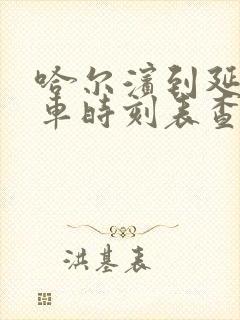 哈尔滨到延
车时刻表查
洪基表